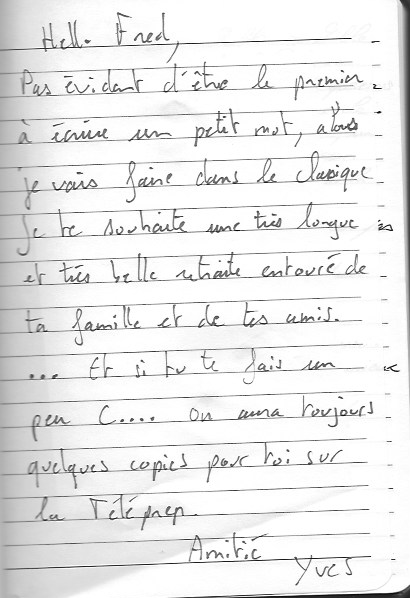 Hello Fred,
Pas évidant d'être le premier
à écrire un petit mot, alors
je vais faire dans le classique
Je te souhaite une très longue
et très belle retraite entouré de
ta famille et de tes amis.
... Et si tu te fais un
peu C.... On aura toujours
quelques copies pour toi sur
la Téléprep.
Amitié
Yves